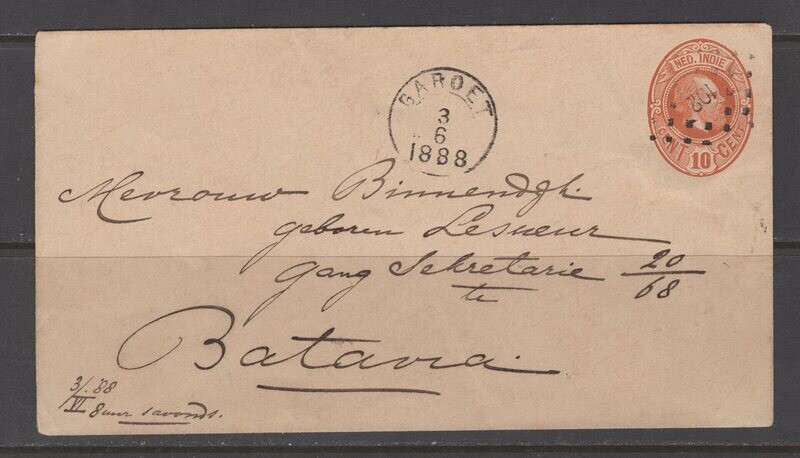 NED. INDIE
CENT 10 CENT
102
GAROET
3
6
1888
Mevrouw Binnendijk.
geboren Lesueur
Gang Sekretarie 20/68
te
Batavia.
3/VI. '88
8 uur savonds.